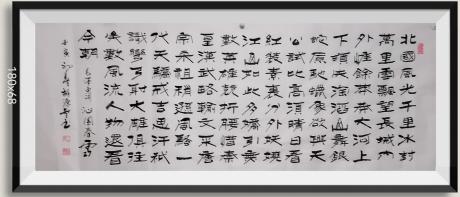 北國風光千里冰封
萬里雪飄望長城內
外惟餘莽莽大河上
下頓失滔滔山舞銀
蛇原馳蠟象欲與天
公試比高須晴日看
紅裝素裹分外妖嬈
江山如此多嬌引無
數英雄競折腰惜秦
皇漢武略輸文采唐
宗宋祖稍遜風騷一
代天驕成吉思汗祇
識彎弓射大雕俱往
矣數風流人物還看
今朝 毛澤東詞 沁園春雪
180x68